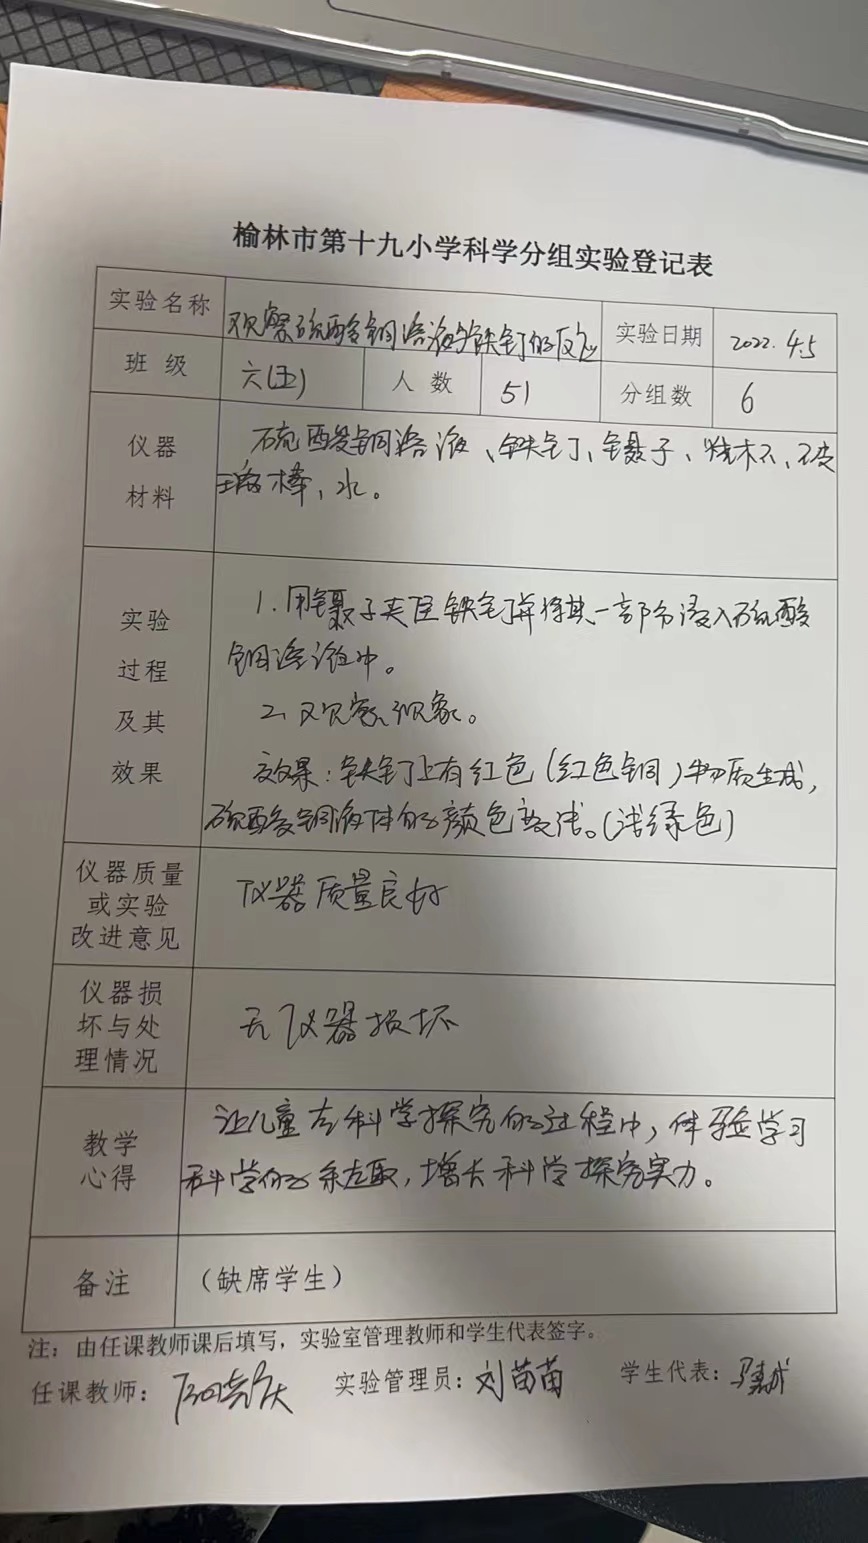 榆林市第十九小学科学分组实验登记表
实验名称 观察硫酸铜溶液与铁钉的反应 实验日期 2022.4.5
班 级 六(五) 人 数 51 分组数 6
仪器
材料
硫酸铜溶液、铁钉、镊子、烧杯、玻
璃棒、水。
实验
过程
及其
效果
1.用镊子夹住铁钉并将其一部分浸入硫酸
铜溶液中。
2、观察现象。
效果:铁钉上有红色(红色铜)物质生成,
硫酸铜液体的颜色变浅。(浅绿色)
仪器质量
或实验
改进意见
仪器质量良好
仪器损
坏与处
理情况
无仪器损坏
教学
心得
让儿童在科学探究的过程中,体验学习
科学的乐趣,增长科学探究实力。
备注 (缺席学生)
注:由任课教师课后填写,实验室管理教师和学生代表签字。
任课教师: 实验管理员:刘苗苗 学生代表: